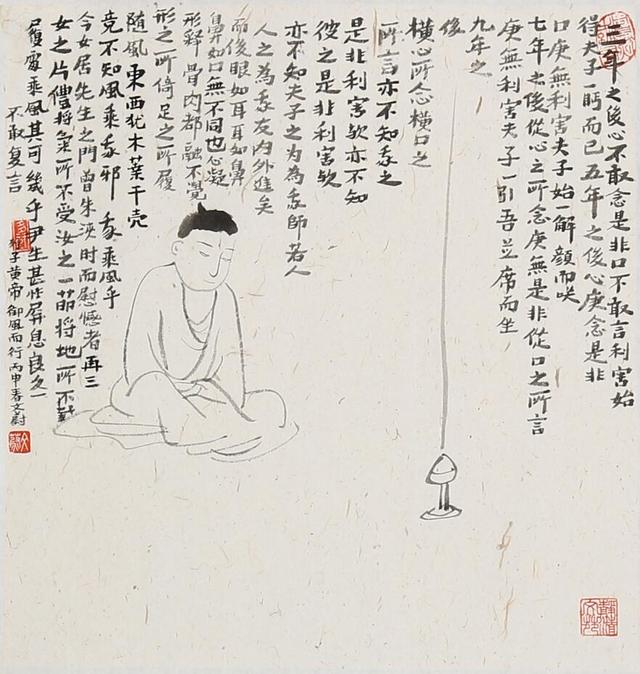 三年之後心不敢念是非口不敢言利害始
得夫子一眄而已五年之後心庚念是非
口庚無利害夫子始一解顏而咲
七年之後從心之所念庚無是非從口之所言
庚無利害夫子一引吾並席而坐
九年之
後
橫心所念橫口之
所言亦不知我之
是非利害歟亦不知
彼之是非利害歟
亦不知夫子之为為我師若人
人之為我友内外進矣
而後眼如耳耳如鼻
鼻如口無不同也心凝
形釋骨肉都融不覺
形之所倚足之所履
隨風東西猶木葉干壳
竟不知風乘我邪我乘風乎
今女居先生之門曾未浹時而懟憾者再三
女之片體將氣所不受汝之一節將地所不載
履虛乘風其可幾乎尹生甚怍屏息良久一
不敢复言
列子黄帝御風而行丙申春文蔚